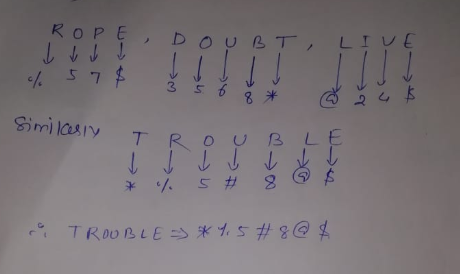 R O P E , D O U B T , L I V E
% 5 7 $ 3 5 6 8 * @ 2 4 $
Similarly
T R O U B L E
* % 5 # 8 @ $
∴ TROUBLE ⇒ * % 5 # 8 @ $